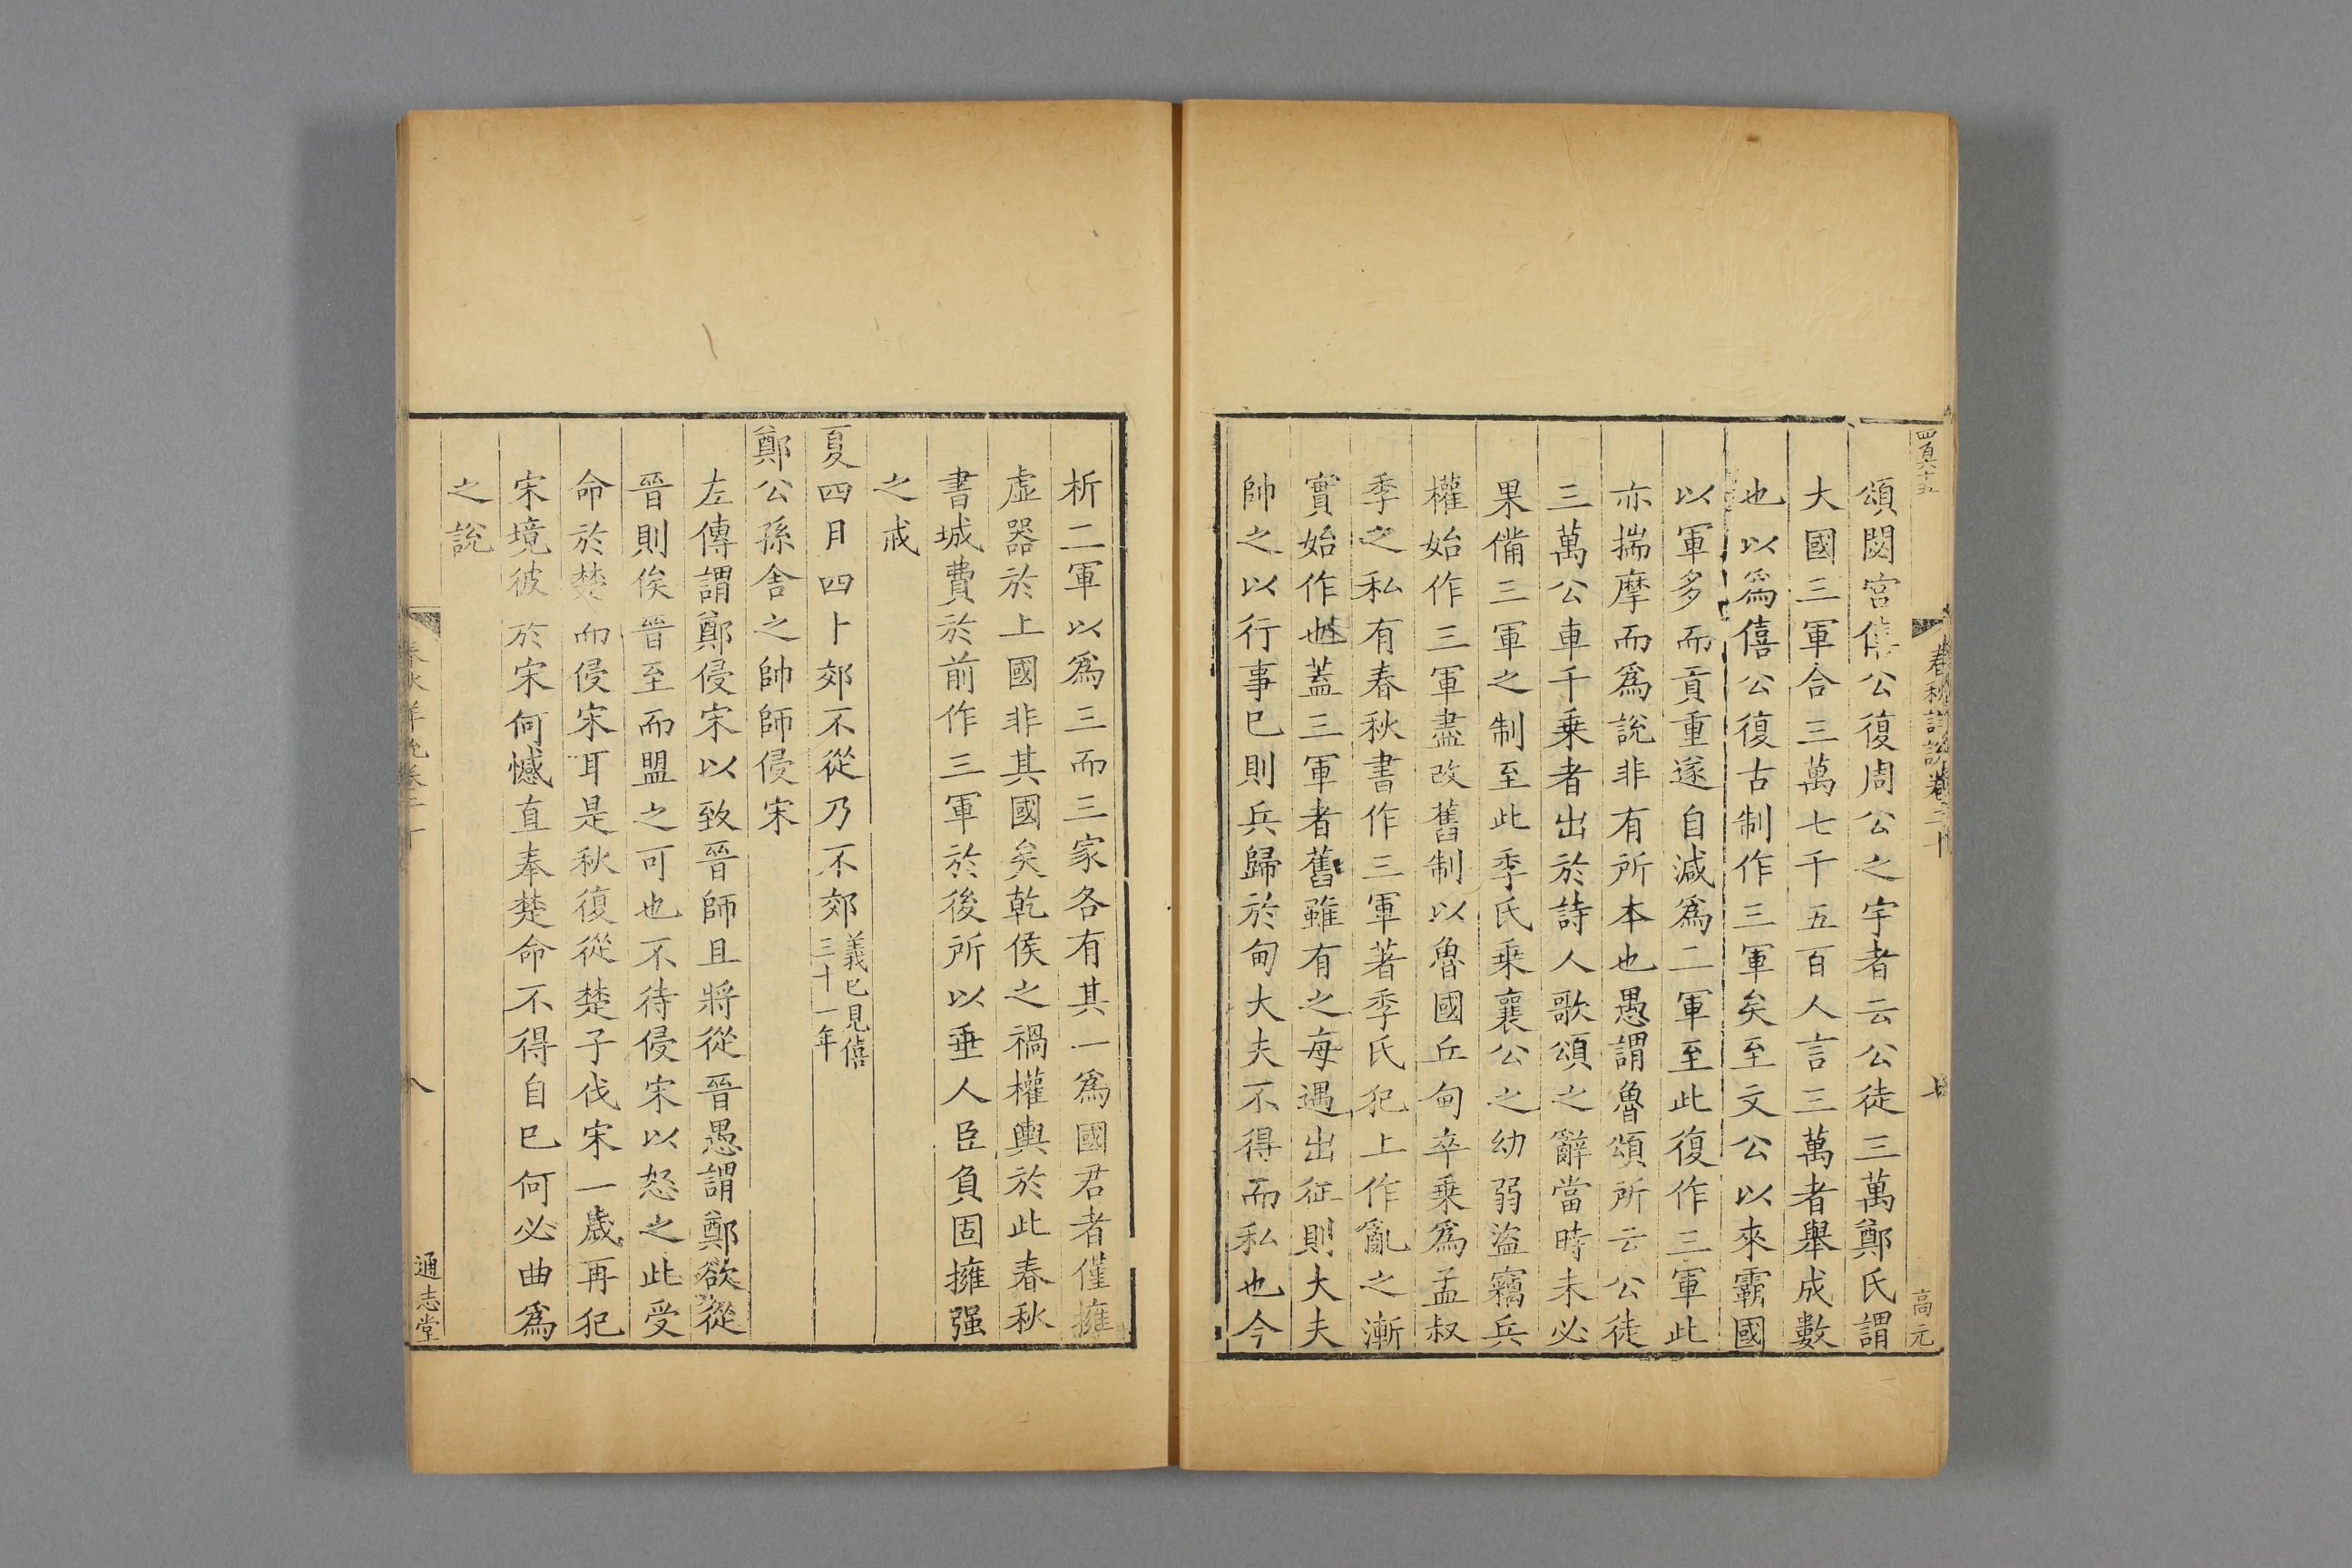 四百六十五
春秋詳說卷二十
七
高元
頌閟宮僖公復周公之宇者云公徒三萬鄭氏謂
大國三軍合三萬七千五百人言三萬者舉成數
也以爲僖公復古制作三軍矣至文公以來霸國
以軍多而貢重遂自減爲二軍至此復作三軍此
亦揣摩而爲說非有所本也愚謂魯頌所云公徒
三萬公車千乗者出於詩人歌頌之辭當時未必
果備三軍之制至此季氏乗襄公之幼弱盜竊兵
權始作三軍盡改舊制以魯國丘甸卒乗爲孟叔
季之私有春秋書作三軍著季氏犯上作亂之漸
實始作也蓋三軍者舊雖有之毎遇出征則大夫
帥之以行事巳則兵歸於甸大夫不得而私也今
析二軍以爲三而三家各有其一爲國君者僅擁
虛器於上國非其國矣乾侯之禍權輿於此春秋
書城費於前作三軍於後所以垂人臣負固擁强
之戒
夏四月四卜郊不從乃不郊義巳見僖
三十一年
鄭公孫舍之帥師侵宋
左傳謂鄭侵宋以致晉師且將從晉愚謂鄭欲從
晉則俟晉至而盟之可也不待侵宋以怒之此受
命於楚而侵宋耳是秋復從楚子伐宋一歲再犯
宋境彼於宋何憾直奉楚命不得自巳何必曲爲
之說
春秋詳說卷二十
八
通志堂